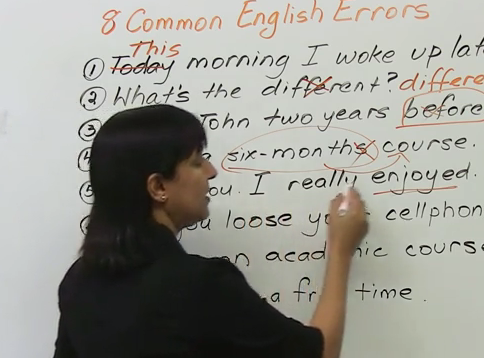 8 Common English Errors
This
① Today morning I woke up lat
② What's the different? differe
③ John two years before
six-months course.
you. I really enjoyed.
loose cellphon
an academic course
a fr time.